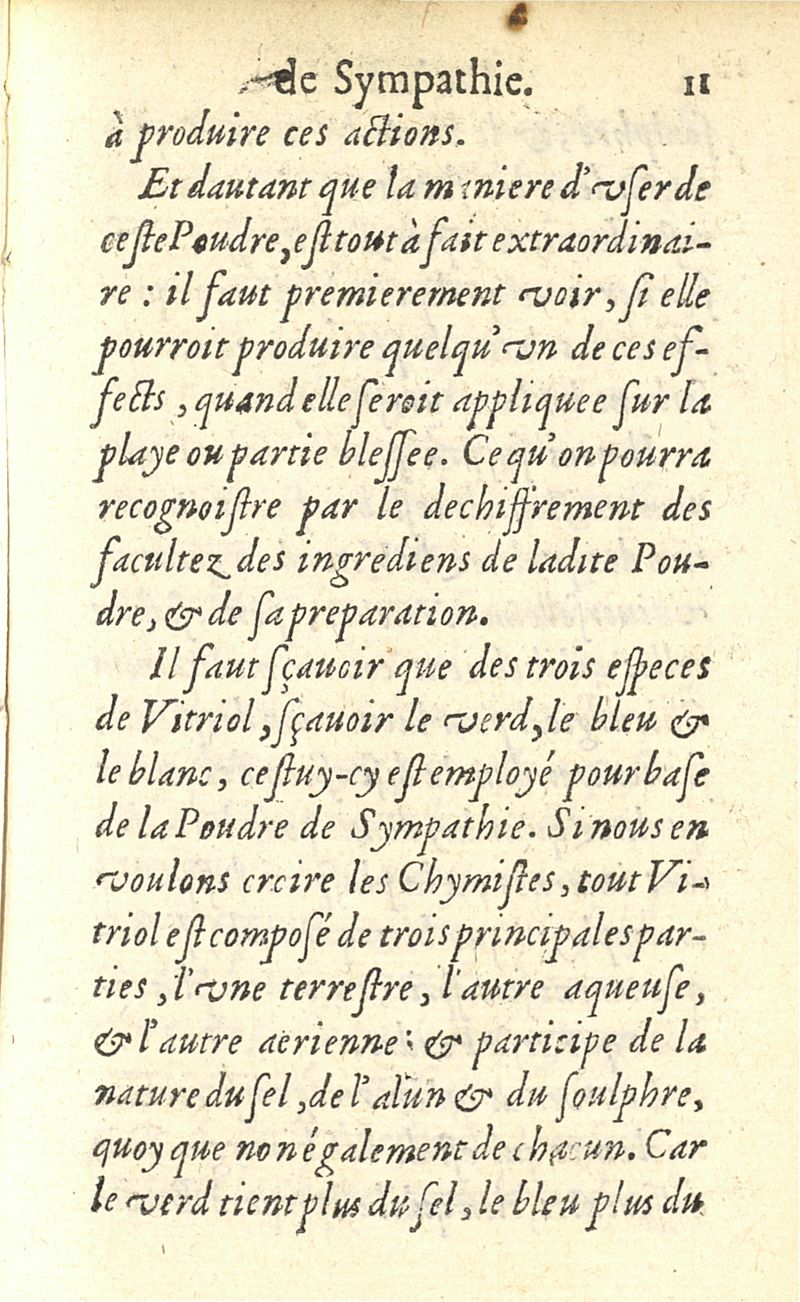 de Sympathie. 11
à produire ces actions.
Et dautant que la maniere d'vſer de
ceſte Poudre, eſt tout à fait extraordinai-
re : il faut premierement voir, ſi elle
pourroit produire quelqu'vn de ces ef-
fects, quand elle ſeroit appliquee ſur la
playe ou partie bleſſee. Ce qu'on pourra
recognoiſtre par le dechiffrement des
facultez des ingrediens de ladite Pou-
dre, & de ſa preparation.
Il faut ſçauoir que des trois eſpeces
de Vitriol, ſçauoir le verd, le bleu &
le blanc, ceſtuy-cy eſt employé pour baſe
de la Poudre de Sympathie. Si nous en
voulons croire les Chymiſtes, tout Vi-
triol eſt compoſé de trois principales par-
ties, l'vne terreſtre, l'autre aqueuſe,
& l'autre aerienne : & participe de la
nature du ſel, de l'alun & du ſoulphre,
quoy que non également de chacun. Car
le verd tient plus du ſel, le bleu plus du